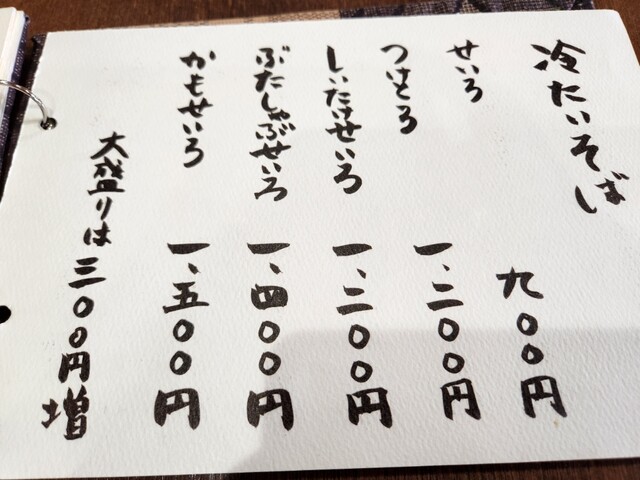 冷たいそば
せいろ 九〇〇円
つけとろ 一、二〇〇円
しいたけせいろ 一、二〇〇円
ぶたしゃぶせいろ 一、四〇〇円
かもせいろ 一、五〇〇円
大盛りは 三〇〇円増